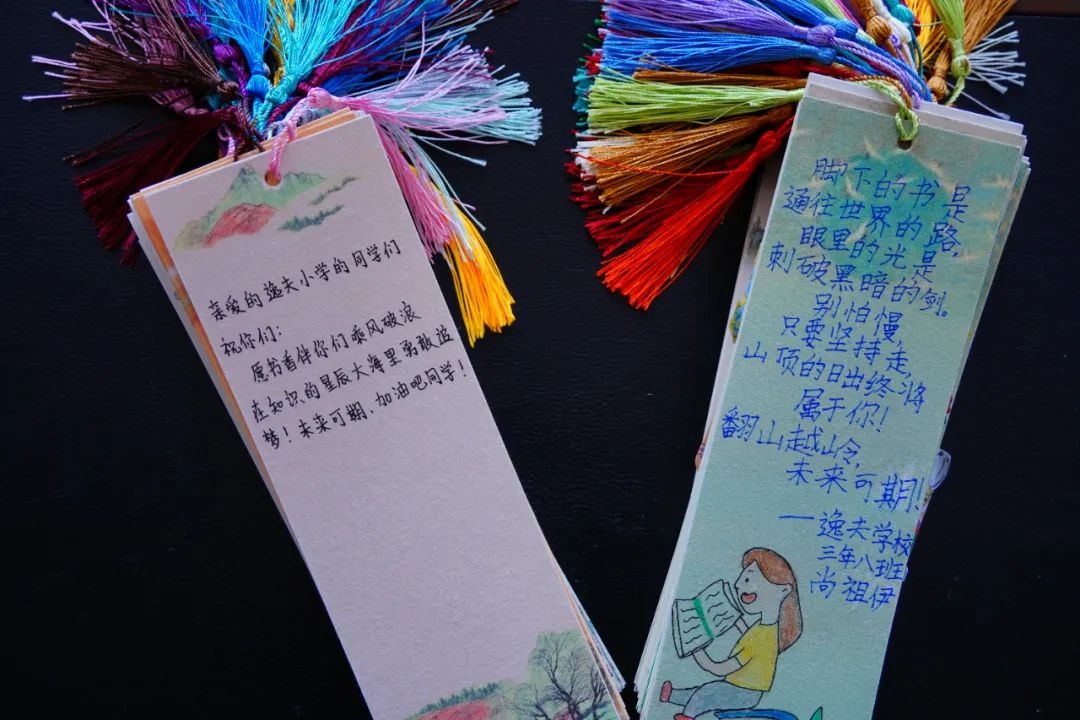 亲爱的逸夫小学的同学们
祝你们:
愿书香伴你们乘风破浪
在知识的星辰大海里勇敢追
梦！未来可期，加油吧同学！
脚下的书是
通往世界的路，
眼里的光是
刺破黑暗的剑。
别怕慢，
只要坚持走，
山顶的日出终将
属于你！
翻山越岭，
未来可期！
——逸夫学校
三年八班
尚祖伊